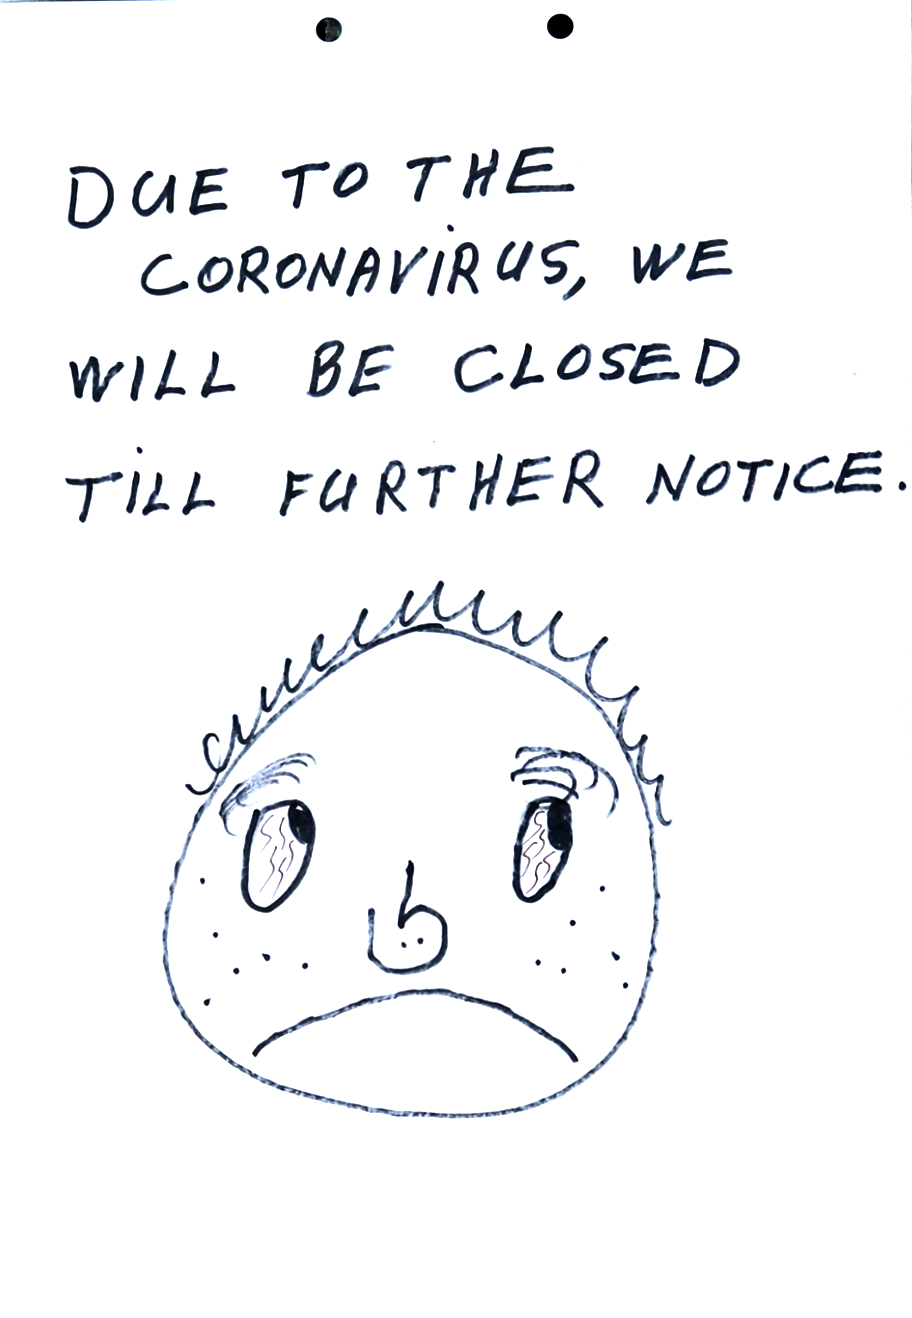 DUE TO THE
CORONAVIRUS, WE
WILL BE CLOSED
TILL FURTHER NOTICE.